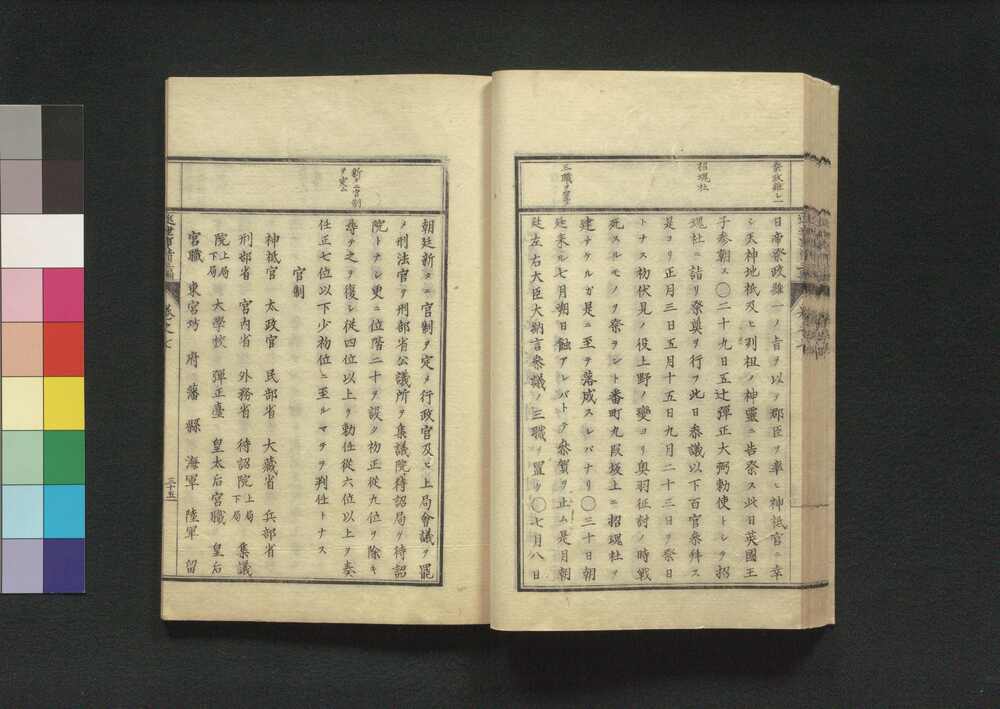 祭政維一
招魂社
三職ヲ置ク
日帝祭政維一ノ旨ヲ以テ郡臣ヲ率ヒ神祗官ニ幸
シ天神地祗及ヒ列祖ノ神靈ニ告祭ス此日英國王
子参朝ス〇二十九日五辻彈正大弼勅使トシテ招
魂社ニ詣リ祭奠ヲ行フ此日参議以下百官参拜ス
是ヨリ正月三日五月十五日九月二十三日ヲ祭日
トナス初伏見ノ役上野ノ變ヨリ奥羽征討ノ時戰
死スルモノヲ祭ラント番町九段坂上ニ招魂社ヲ
建ナケルガ是ニ至テ落成スレバナリ〇三十日朝
廷来ル七月朔日蝕アレバトテ参賀ヲ止ム是月朝
廷左右大臣大納言参議ノ三職ヲ置ク〇七月八日
新ニ官制ヲ定ム
朝廷新タニ官制ヲ定メ行政官及ヒ上局會議ヲ罷
メ刑法官ヲ刑部省公議所ヲ集議院待詔局ヲ待詔
院トナシ更ニ位階二十ヲ設ク初正從九位ヲ除キ
尋テ之ヲ復シ従四位以上ヲ勅任從六位以上ヲ奏
任正七位以下少初位ニ至ルマテヲ判任トナス
官制
神祗官 太政官 民部省 大藏省 兵部省
刑部省 宮内省 外務省 待詔院上局下局 集議
院上局下局 大學校 彈正臺 皇太后宮職 皇后
宮職 東宮坊 府 藩 縣 海軍 陸軍 留
卷之七
三十五